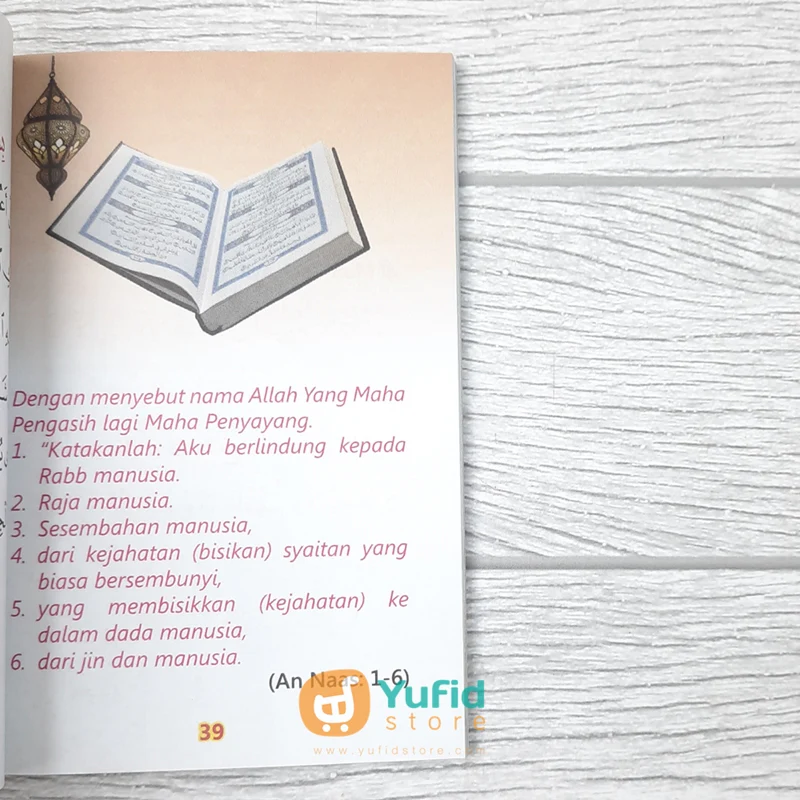 Dengan menyebut nama Allah Yang Maha
Pengasih lagi Maha Penyayang.
1. "Katakanlah: Aku berlindung kepada
Rabb manusia.
2. Raja manusia.
3. Sesembahan manusia,
4. dari kejahatan (bisikan) syaitan yang
biasa bersembunyi,
5. yang membisikkan (kejahatan) ke
dalam dada manusia,
6. dari jin dan manusia.
(An Naas: 1-6)
39
Yufid
store
www.yufidstore.com